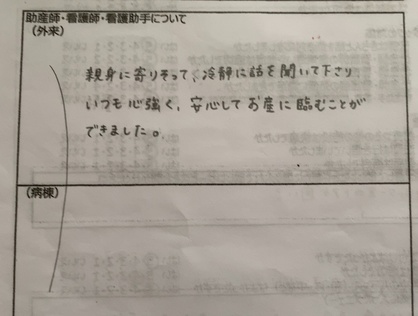 助産師・看護師・看護助手について
（外来）
親身に寄りそって、冷静に話を聞いて下さり
いつも心強く、安心してお産に臨むことが
できました。
（病棟）